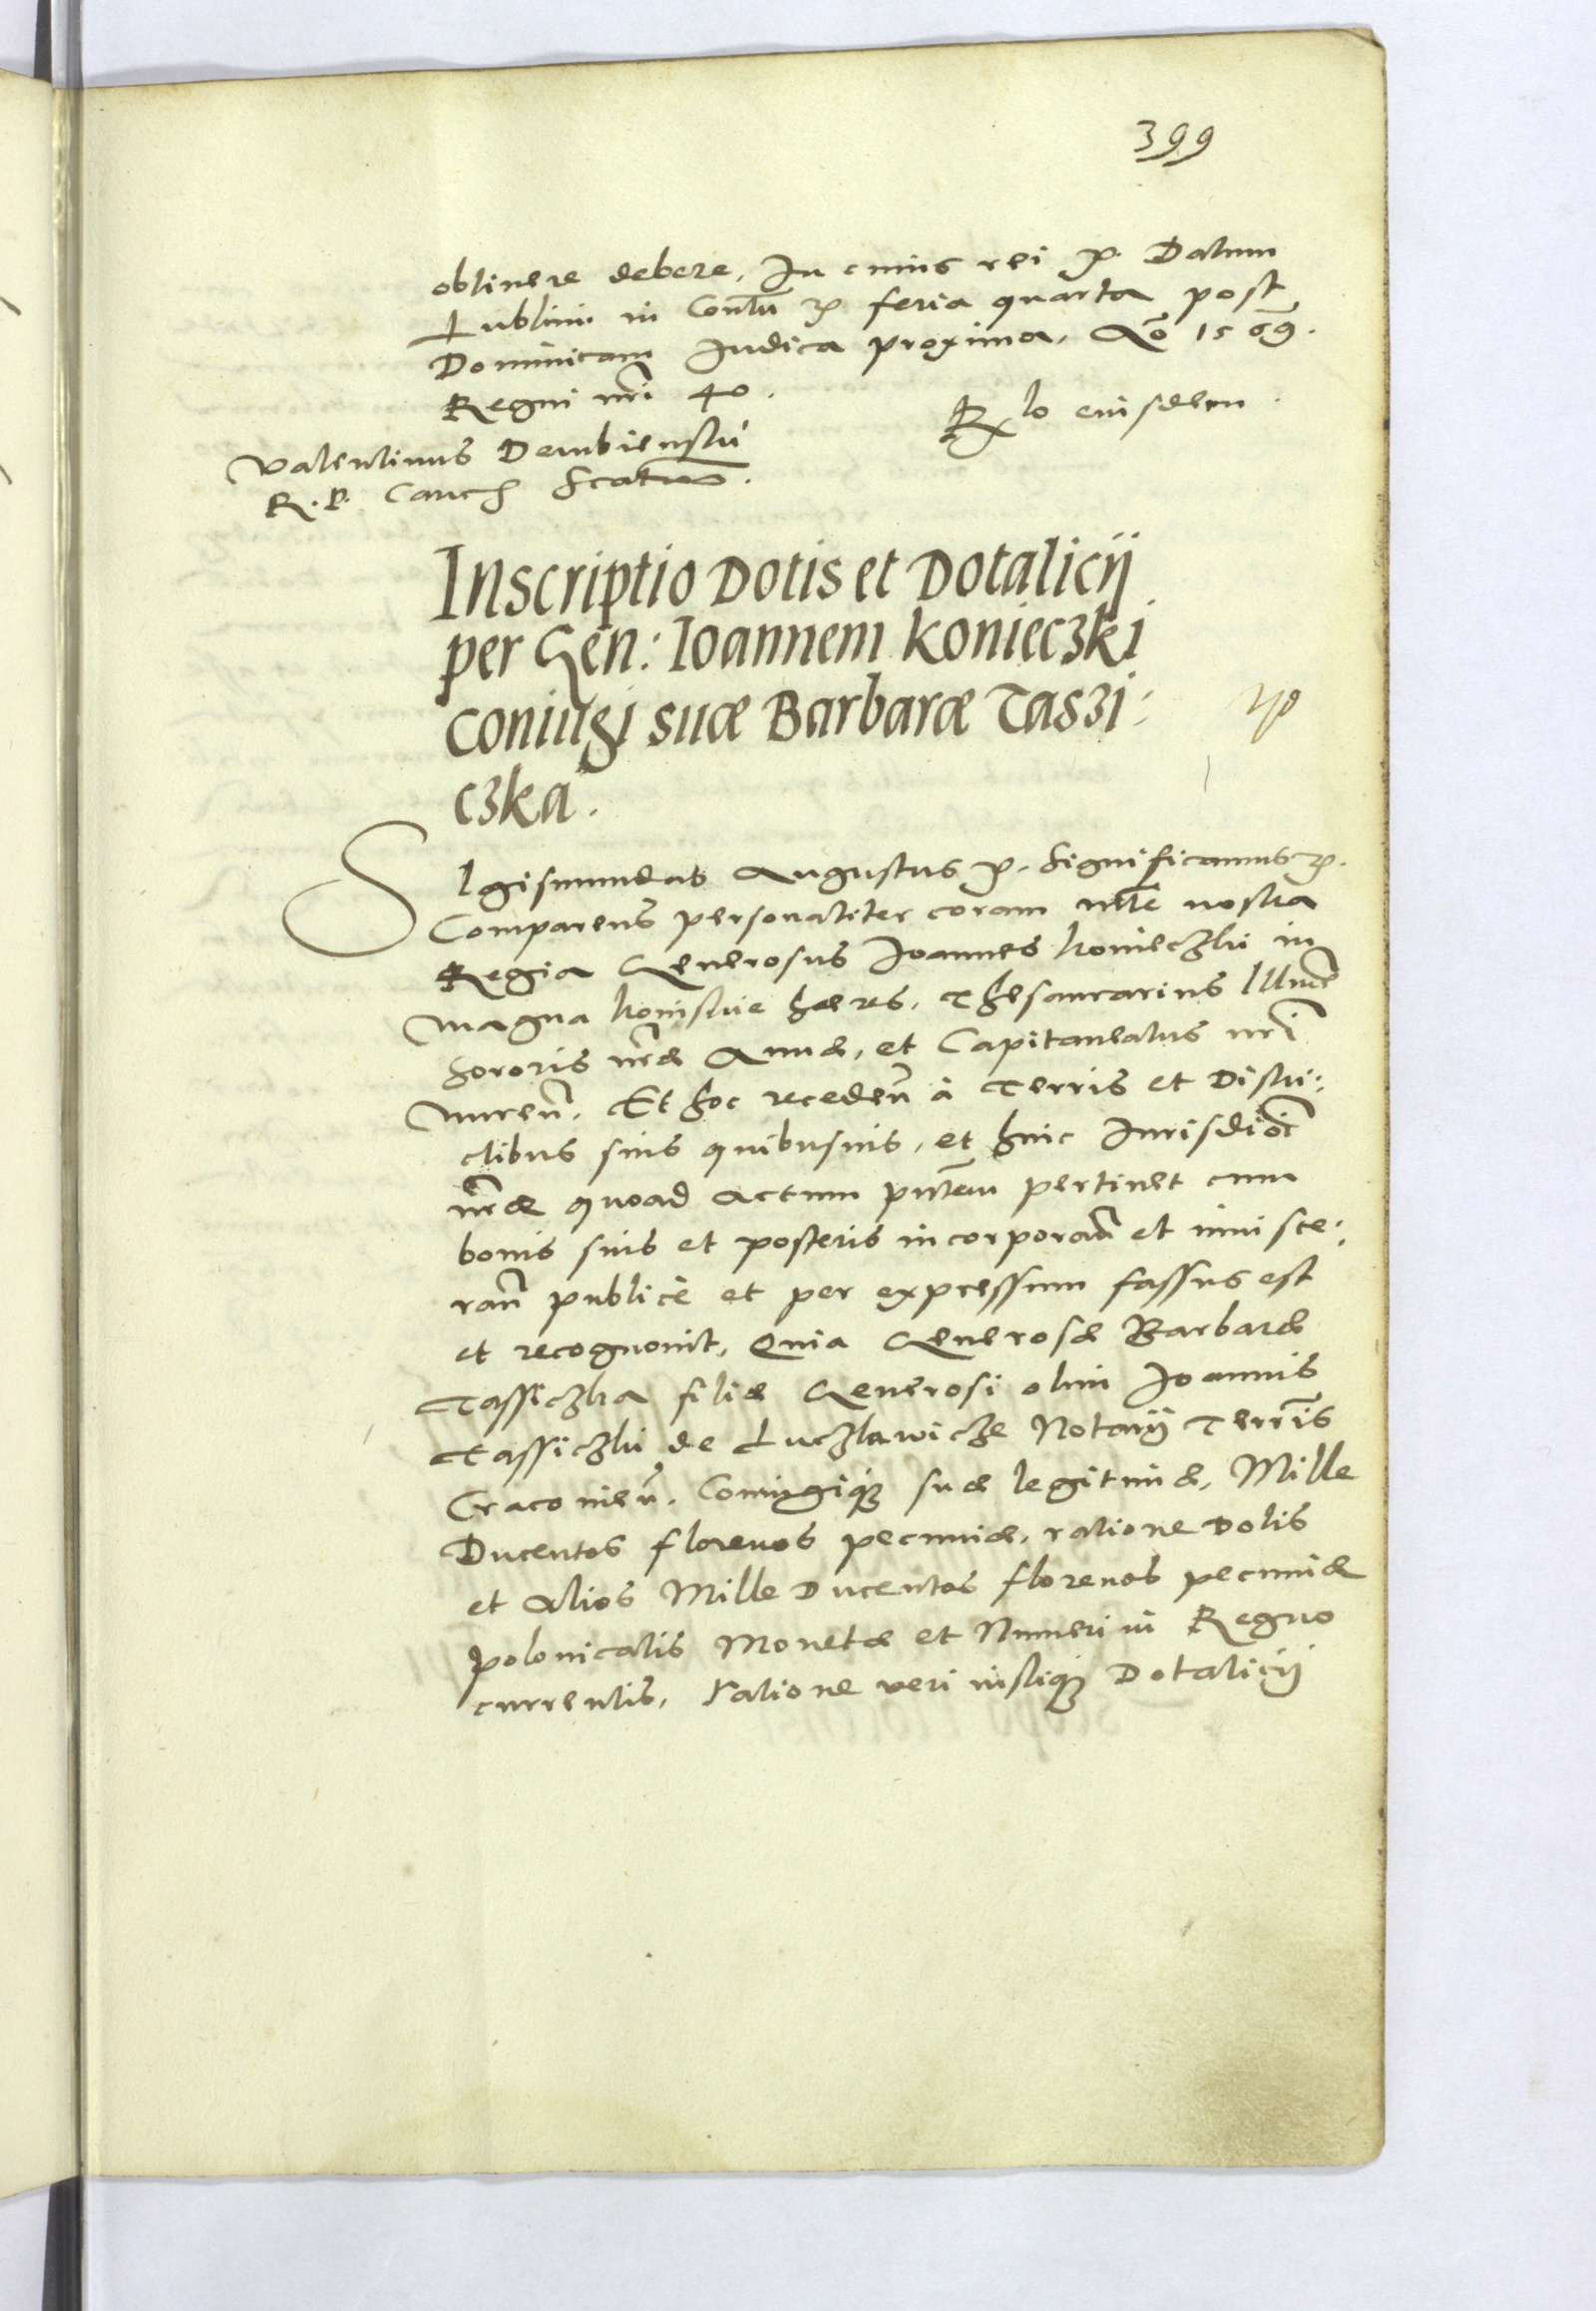 399
obtinere debere, In cuius rei etc. Datum
Lublini in Conventu etc. feria quarta post
Dominicam Iudica proxima, Ao 1569.
Regni nri 40.
Rlo eiusdem.
Valentinus Dembienski
R. P. Canc. scatur.
Inscriptio Dotis et Dotalicij
per Gen: Ioannem Konieczki
coniugi suæ Barbaræ Taszi:
czka.
SIgismundus Augustus etc. Significamus etc.
Comparens personaliter coram mte nostra
Regia Generosus Ioannes Konieczki in
magna Koniskie hæres, Thesaurarius Illme
Sororis nræ Annæ, et Capitaneatus nri
Et hoc receden à Terris et Distri:
ctibus suis quibusuis, et huic Iurisdicti
nræ quoad actum pntem pertinet cum
bonis suis et posteris incorporan et inuisce:
ran publicè et per expressum fassus est
et recognouit, Quia Generosæ Barbaræ
Tassiczka filiæ Generosi olim Ioannis
Tassiczki de Luczlawicze Notarij Terris
Cracouien. Coniugiq suæ legitimæ, Mille
Ducentos florenos pecuniæ, ratione Dotis
et alios Mille Ducentos florenos pecuniæ
polonicalis Monetæ et Numeri in Regno
currentis, ratione veri iustiq Dotalicij